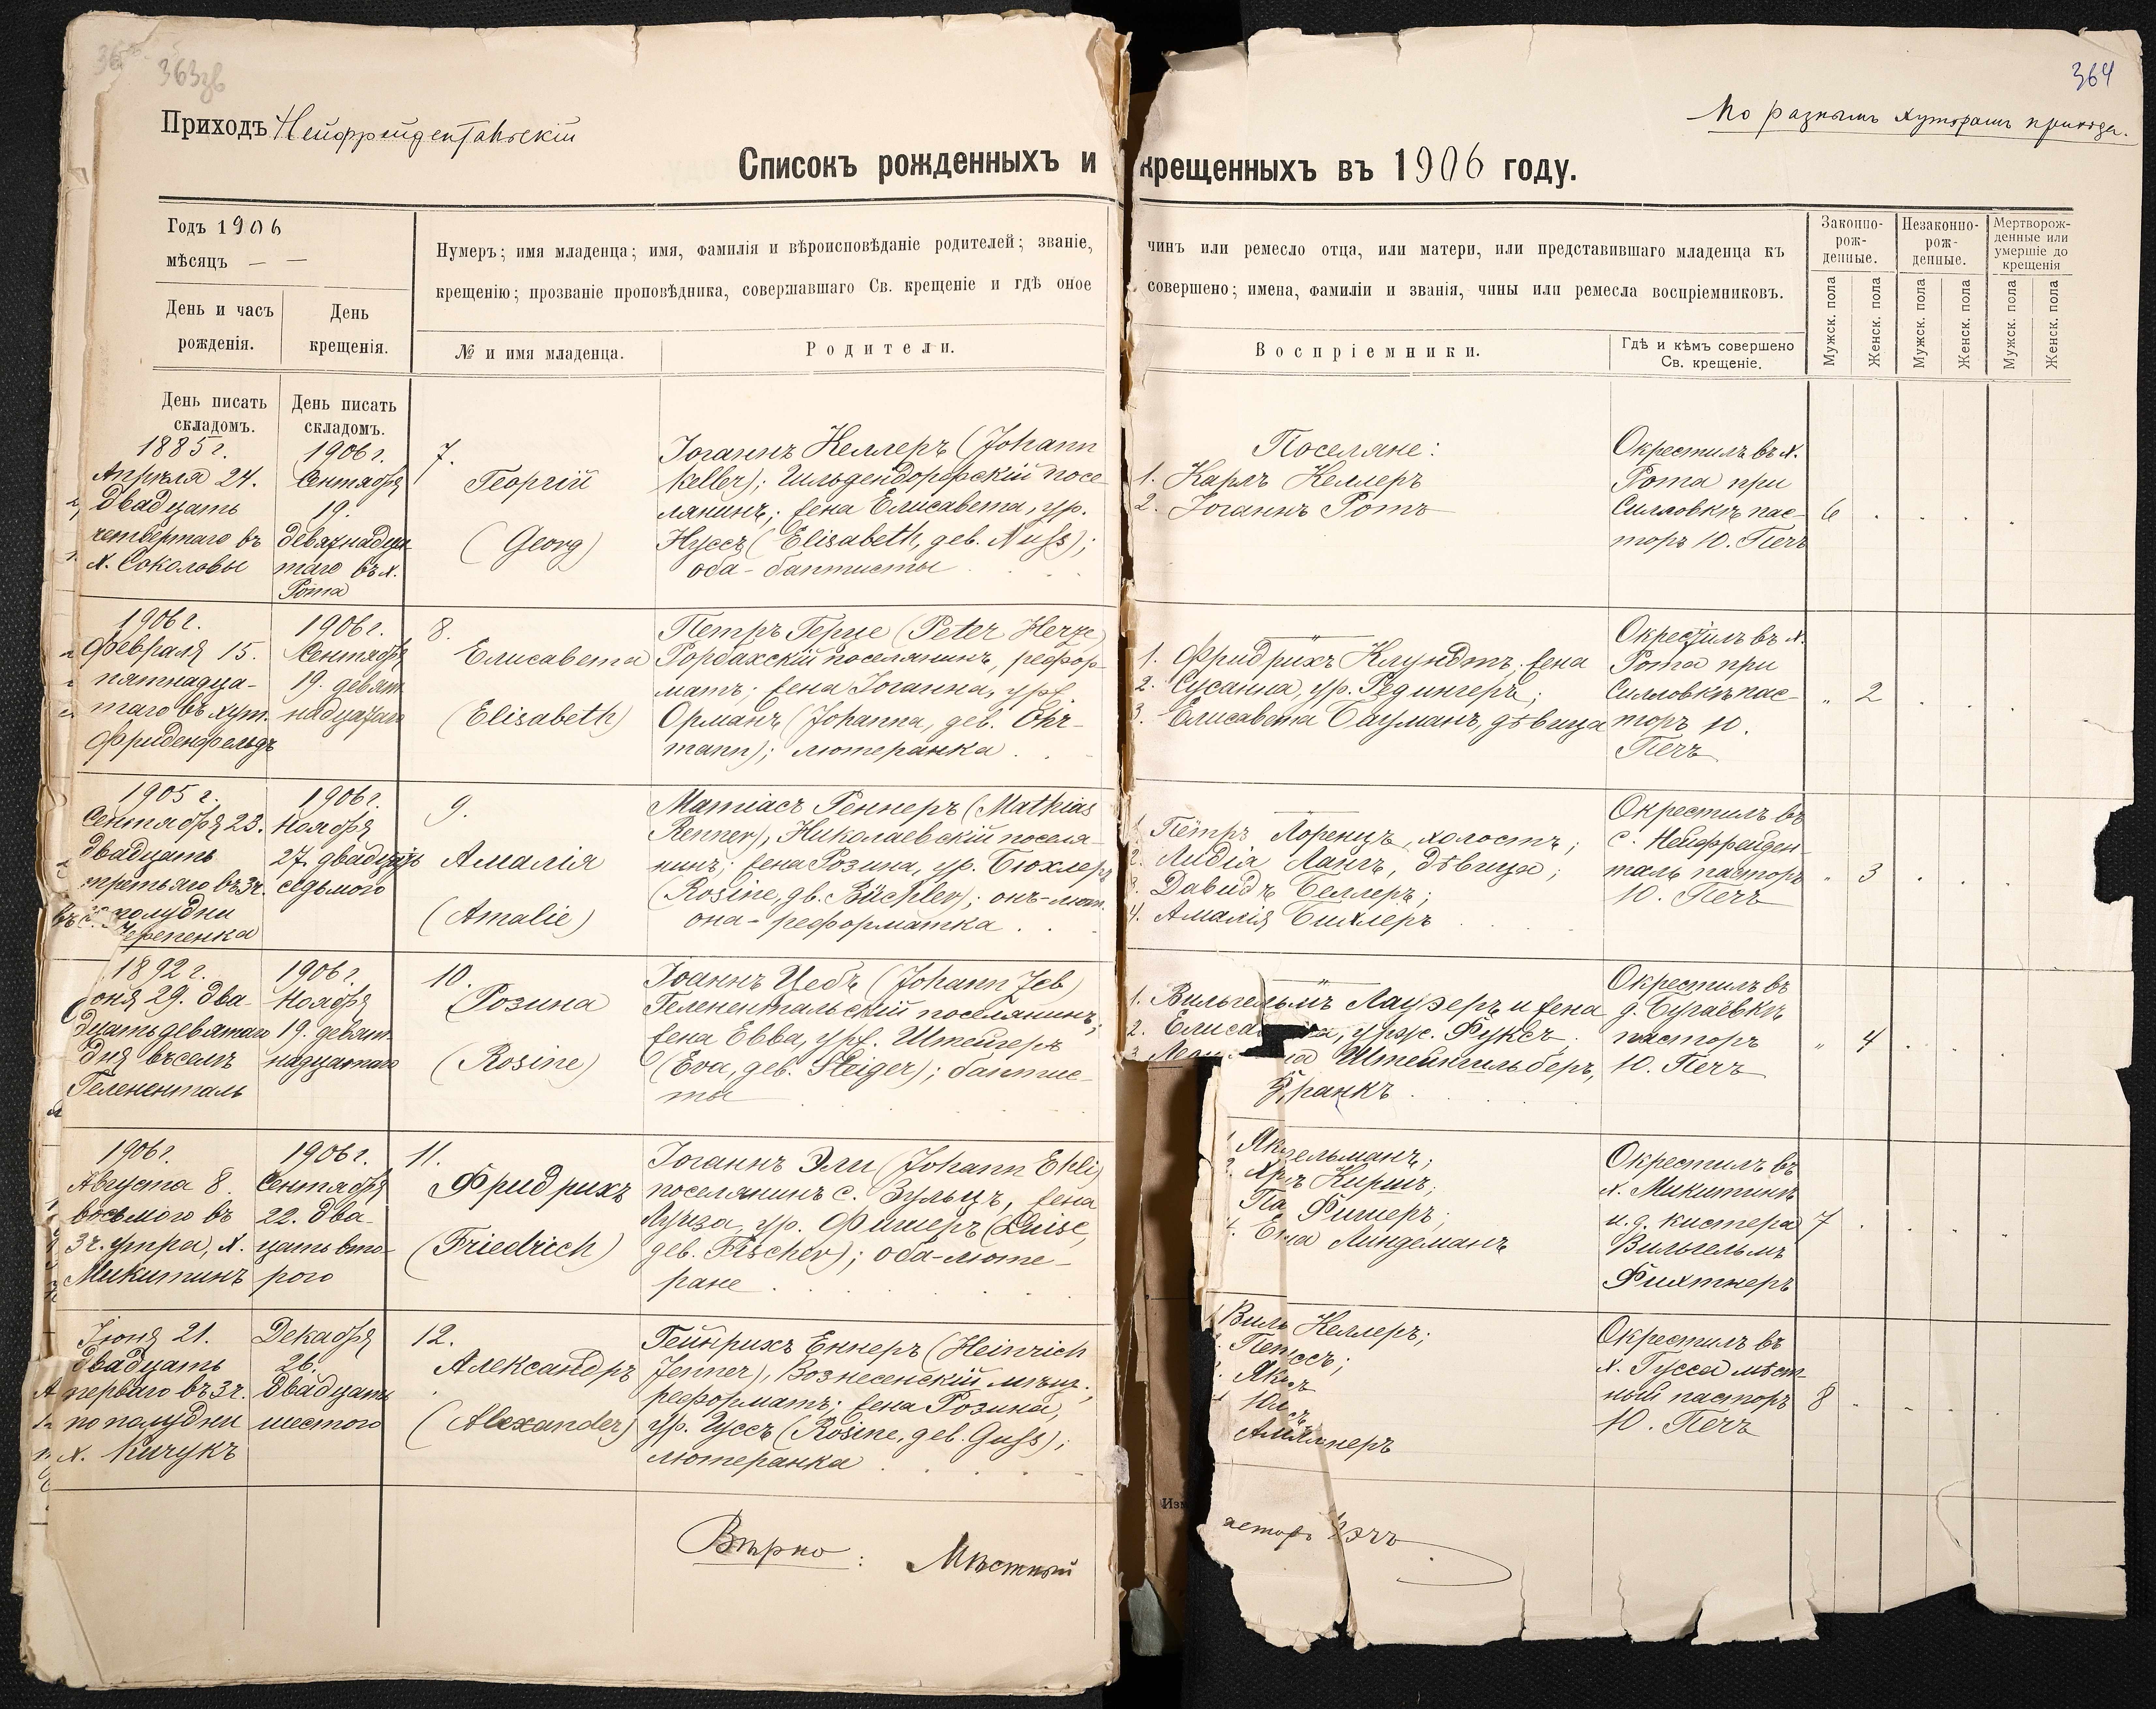 363об
364
Приходъ Нейфрейдентальскій
По разнымъ хуторамъ прихода.
Списокъ рожденныхъ и крещенныхъ въ 1906 году.
Годъ 1906
мѣсяцъ — —
День и часъ рожденія.
День крещенія.
Нумеръ; имя младенца; имя, фамилія и вѣроисповѣданіе родителей; званіе, чинъ или ремесло отца, или матери, или представившаго младенца къ
крещенію; прозваніе проповѣдника, совершавшаго Св. крещеніе и гдѣ оное совершено; имена, фамиліи и званія, чины или ремесла воспріемниковъ.
№ и имя младенца.
Родители.
Воспріемники.
Гдѣ и кѣмъ совершено
Св. крещеніе.
Законно-
рож-
денные.
Незаконно-
рож-
денные.
Мертворож-
денные или
умершіе до
крещенія
Мужск. пола
Женск. пола
Мужск. пола
Женск. пола
Мужск. пола
Женск. пола
День писать
складомъ.
День писать
складомъ.
1885 г.
Апрѣля 24.
Двадцать
четвертаго въ
х. Соколовы
1906 г.
Сентября
19.
девятнадца
таго въ х.
Рота
7.
Георгій
(Georg)
Іоганнъ Келлеръ (Johann
Keller); Гильдендорфскій посе
лянинъ; жена Елисавета, ур.
Нуссъ (Elisabeth, geb. Nuss);
оба - баптисты
Поселяне:
1. Карлъ Келлеръ
2. Іоганнъ Ротъ
Окрестилъ въ х.
Рота при
Силловкѣ пас-
торъ Ю. Печъ
6
1906 г.
Февраля 15.
пятнадца-
таго въ хут.
Фриденфельдъ
1906 г.
Сентября
19. девят
надцатаго
8.
Елисавета
(Elisabeth)
Петръ Герце (Peter Herze)
Рорбахскій поселянинъ, рефор-
матъ; жена Іоганна, урж.
Орманъ (Johanna, geb. Ohr-
mann); лютеранка
1. Фридрихъ Клундтъ; жена
2. Сусанна, ур. Редингеръ;
3. Елисавета Бауманъ, дѣвица
Окрестилъ въ х.
Рота при
Силловкѣ пас-
торъ Ю.
Печъ
" 2
1905 г.
Сентября 23.
двадцать
третьяго въ 3 ч.
полудни
Черепенка
1906 г.
Ноября
27. двадцать
седьмого
9.
Амалія
(Amalie)
Матіасъ Реннеръ (Mathias
Renner), Николаевскій поселя-
нинъ; жена Розина, ур. Бюхлеръ
(Rosine, gb. Büchler); онъ-лют.
она - реформатка
1. Петръ Лоренцъ, холостъ;
2. Лидія Лангъ, дѣвица;
3. Давидъ Беллеръ;
4. Амалія Бихлеръ
Окрестилъ въ
с. Нейфрейден-
таль пасторъ
Ю. Печъ
" 3
1892 г.
Іюня 29. два
дцать девятаго
дня въ сель
Гелененталь
1906 г.
Ноября
19. девят
надцатаго
10.
Розина
(Rosine)
Іоаннъ Цебъ (Johann Zeb)
Гелененталскій поселянинъ;
жена Евва, урж. Штейгеръ
(Eva, geb. Steiger); баптис-
ты
1. Вильгельмъ Лаузеръ и жена
2. урж. Фуксъ
Штейнгильберъ,
Франкъ
Окрестилъ въ
д. Бугаёвкѣ
пасторъ
Ю. Печъ
" 4
1906 г.
Августа 8.
восьмого въ
3 ч. утра, х.
Микитинъ
1906 г.
Сентября
22. два-
цать вто-
рого
11.
Фридрихъ
(Friedrich)
Іоганнъ Эли (Johann Ehli)
поселянинъ с. Зульцъ, жена
Луиза, ур. Фишеръ (Luise,
geb. Fischer); оба-люте-
ране
1. Як зельманъ;
2. Хр ъ Киршъ;
Па Фишеръ;
4. Е на Линдеманъ
Окрестилъ въ
х. Микитинъ
и. д. кистера
Вильгельмъ
Фихтнеръ
7
Іюня 21.
двадцать
перваго въ 3 ч.
по полудни
х. Кичукъ
Декабря
26.
двадцать
шестого
12.
Александръ
(Alexander)
Гейнрихъ Еннеръ (Heinrich
Jenner), Вознесенскій мѣщ.;
реформатъ; жена Розина,
ур. Гуссъ (Rosine, geb. Guss);
лютеранка
Виль Келлеръ;
Пе ссъ;
Як ъ
Юл
Ам неръ
Окрестилъ въ
х. Гусса мѣст
ный пасторъ
Ю. Печъ
8
Вѣрно: Мѣстный
асторъ Печъ